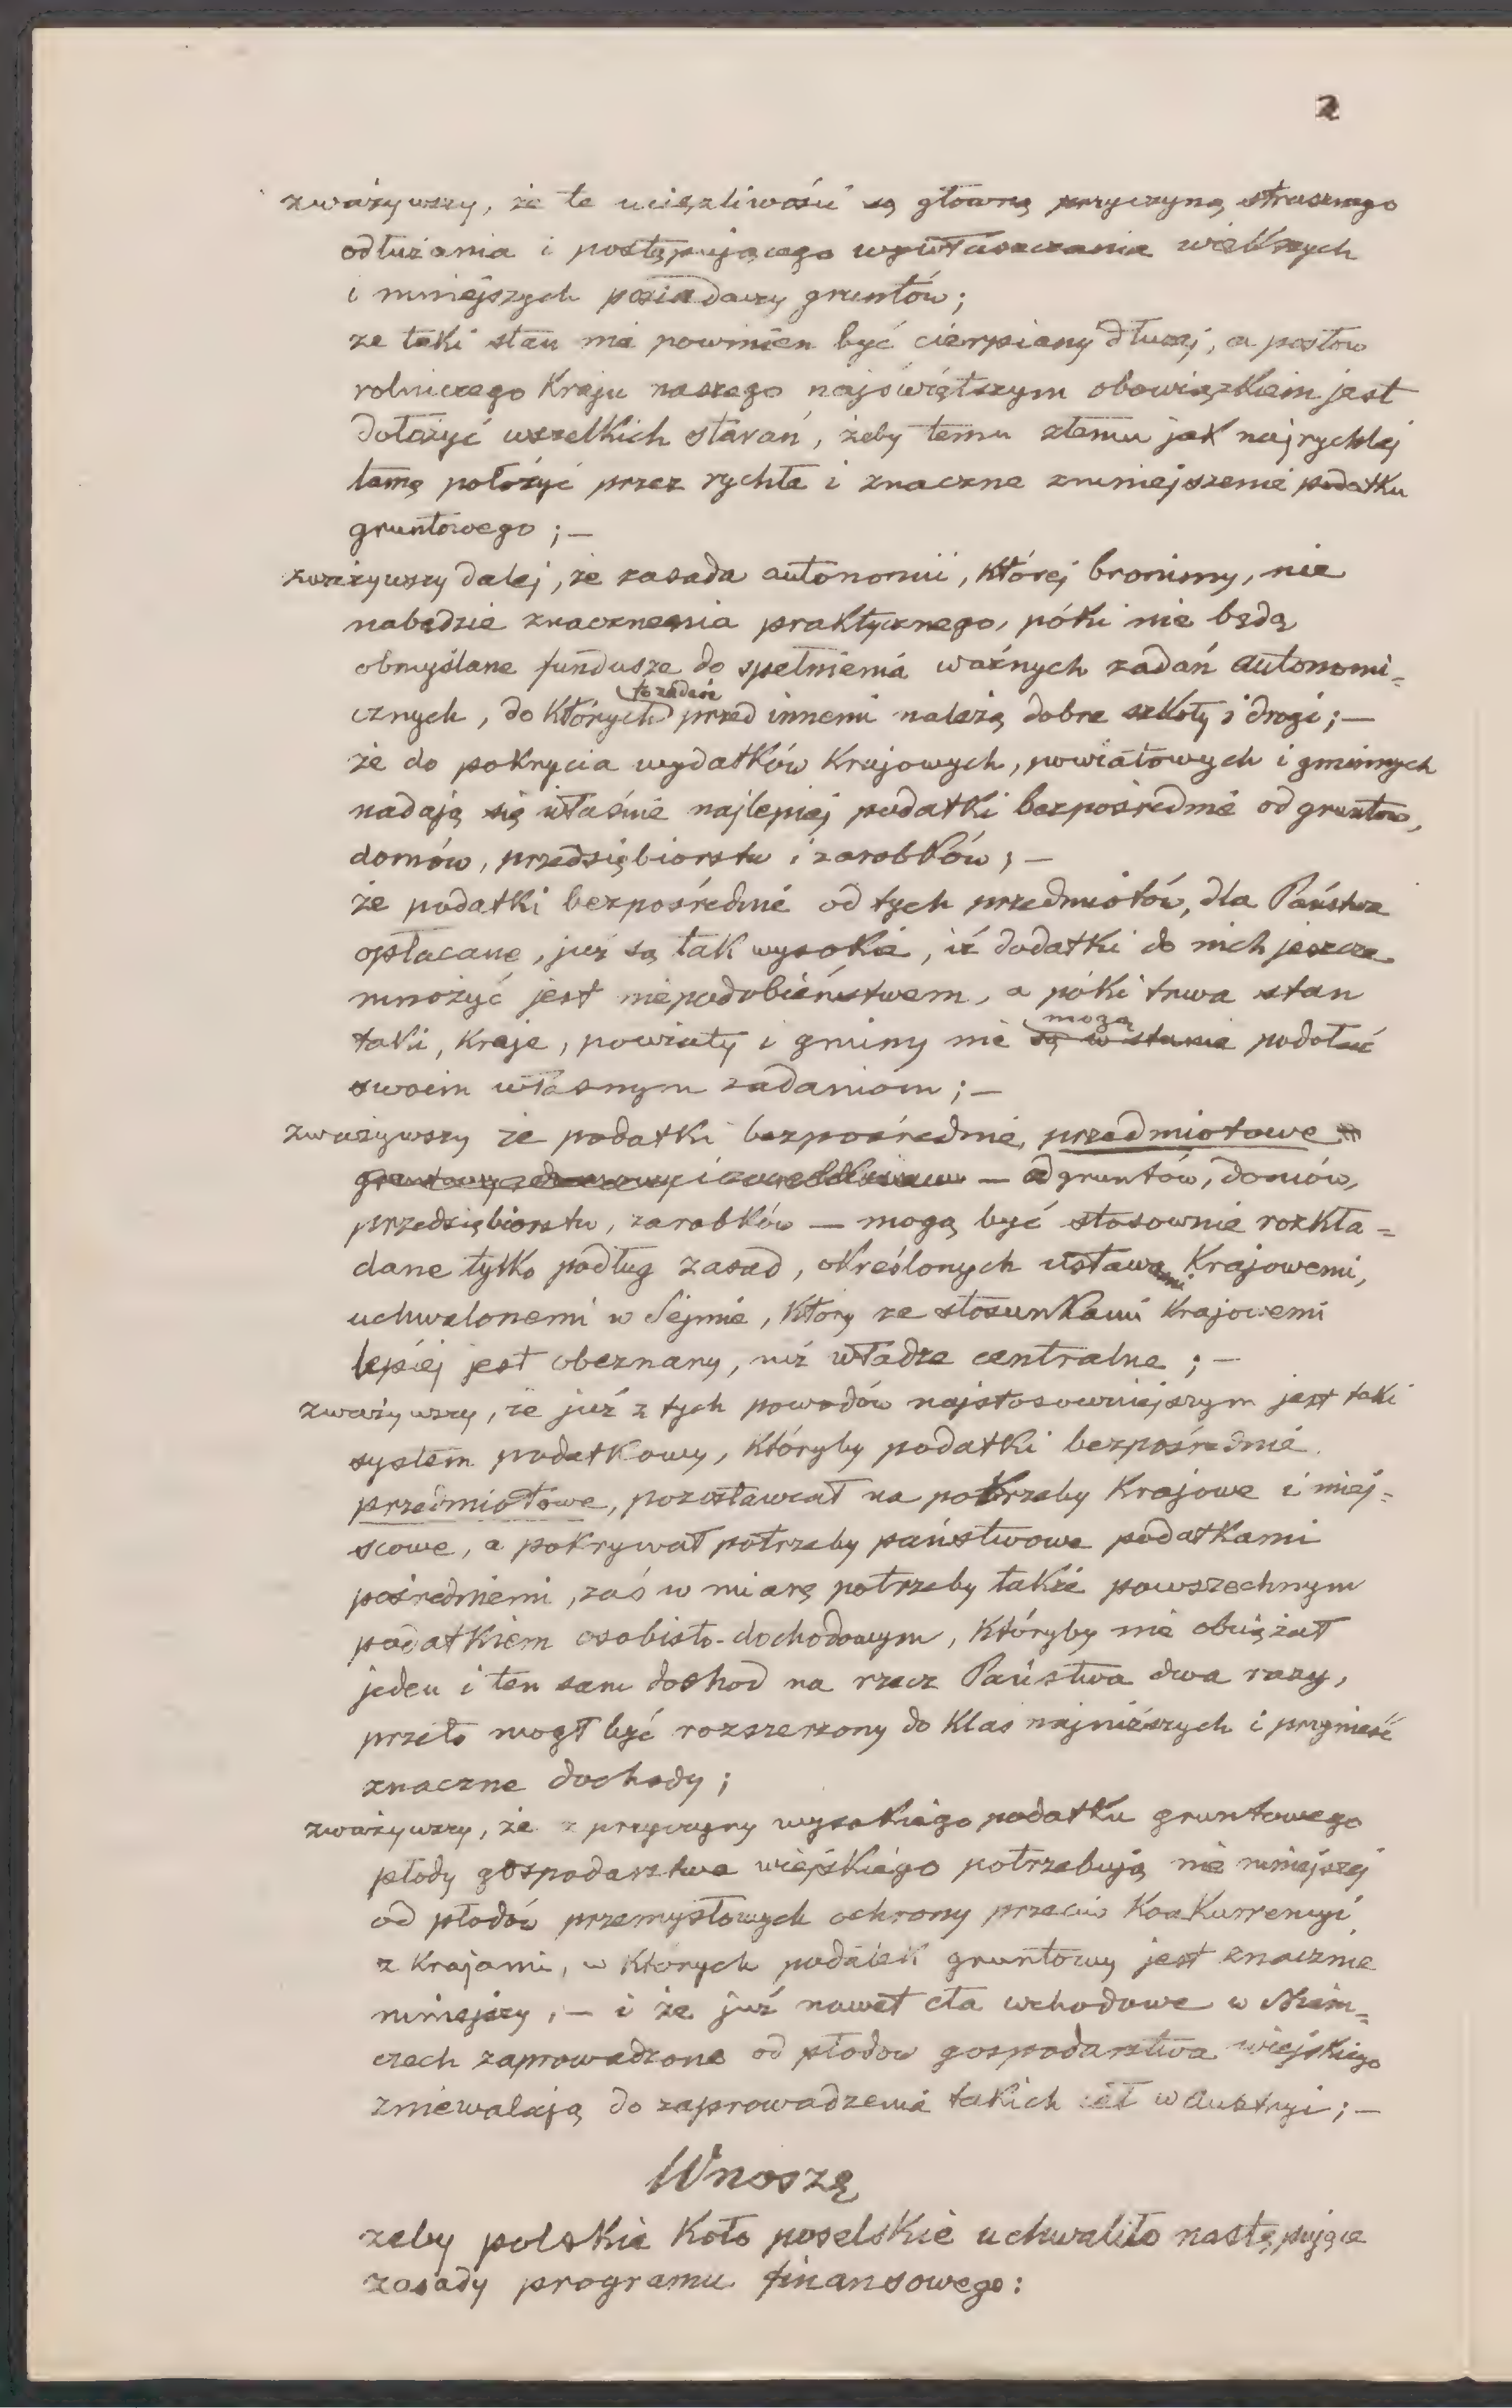 2
zważywszy, że te uciążliwości są główną przyczyną strasznego
odłużania i postępującego wywłaszczania większych
i mniejszych posiadaczy gruntów;
że taki stan nie powinien być cierpiany dłużej, a posłów
rolniczego Kraju naszego najświętszym obowiązkiem jest
dołożyć wszelkich starań, żeby temu złemu jak najrychlej
tamę położyć przez rychłe i znaczne zmniejszenie podatku
gruntowego; —
zważywszy dalej, że zasada autonomii, której bronimy, nie
nabędzie znaczenia praktycznego, póki nie będą
obmyślane fundusze do spełnienia ważnych zadań autonomi=
cznych, do których przed innemi należą dobre szkoły i drogi; —
że do pokrycia wydatków Krajowych, powiatowych i gminnych
nadają się właśnie najlepiej podatki bezpośrednie od gruntów,
domów, przedsiębiorstw i zarobków; —
że podatki bezpośrednie od tych przedmiotów, dla Państwa
opłacane, już są tak wysokie, iż dodatki do nich jeszcze
mnożyć jest niepodobieństwem, a póki trwa stan
taki, Kraje, powiaty i gminy nie są w stanie mogą podołać
swoim własnym zadaniom; —
zważywszy że podatki bezpośrednie, przedmiotowe
— od gruntów, domów,
przedsiębiorstw, zarobków — mogą być stosownie rozkła=
dane tylko podług zasad, określonych ustawami Krajowemi,
uchwalonemi w Sejmie, który ze stosunkami Krajowemi
lepiej jest obeznany, niż władze centralne; —
zważywszy, że już z tych powodów najstosowniejszym jest taki
system podatkowy, któryby podatki bezpośrednie
przedmiotowe, pozostawiał na potrzeby Krajowe i miej=
scowe, a pokrywał potrzeby państwowe podatkami
pośredniemi, zaś w miarę potrzeby także powszechnym
podatkiem osobisto-dochodowym, któryby nie obciążał
jeden i ten sam dochód na rzecz Państwa dwa razy,
przeto mógł być rozszerzony do Klas najniższych i przynieść
znaczne dochody;
zważywszy, że z przyczyny wysokiego podatku gruntowego
płody gospodarstwa wiejskiego potrzebują nie mniejszej
od płodów przemysłowych ochrony przeciw Konkurrencyi
z Krajami, w których podatek gruntowy jest znacznie
mniejszy, — i że już nawet cła wchodowe w Niem=
czech zaprowadzone od płodów gospodarstwa wiejskiego
zniewalają do zaprowadzenia takich ceł w Austryi; —
Wnoszę
żeby polskie Koło poselskie uchwaliło następujące
zasady programu finansowego: